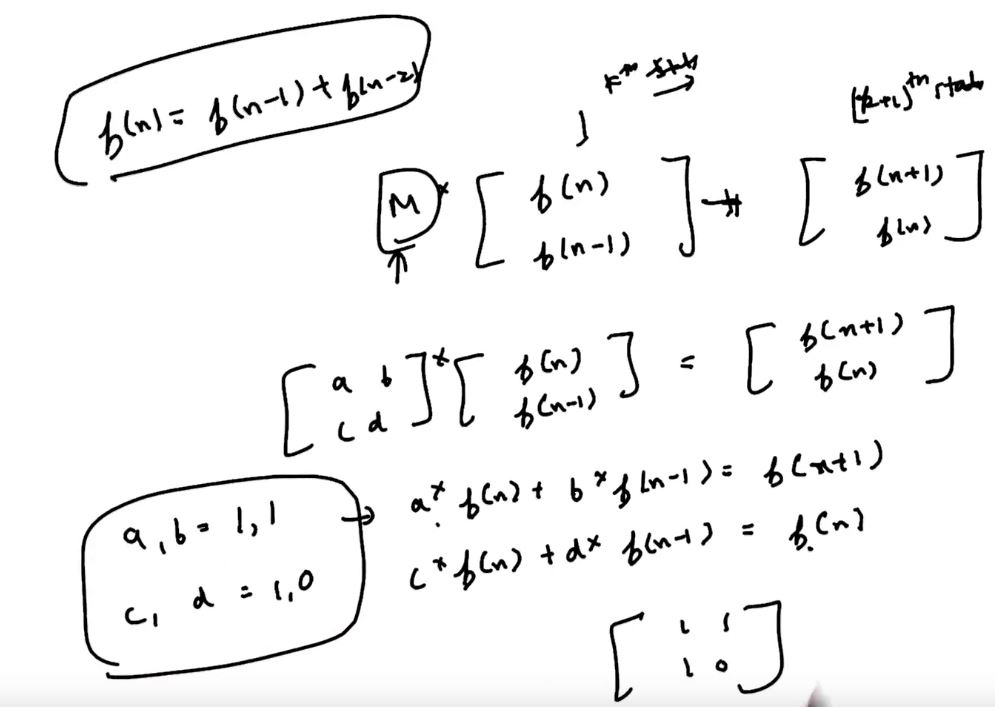 f(n) = f(n-1) + f(n-2)
k^th state
[k+1]^th state
M * [ f(n) f(n-1) ] → [ f(n+1) f(n) ]
[ a b c d ] * [ f(n) f(n-1) ] = [ f(n+1) f(n) ]
a * f(n) + b * f(n-1) = f(n+1)
a, b = 1, 1
c * f(n) + d * f(n-1) = f(n)
c, d = 1, 0
[ 1 1
1 0 ]